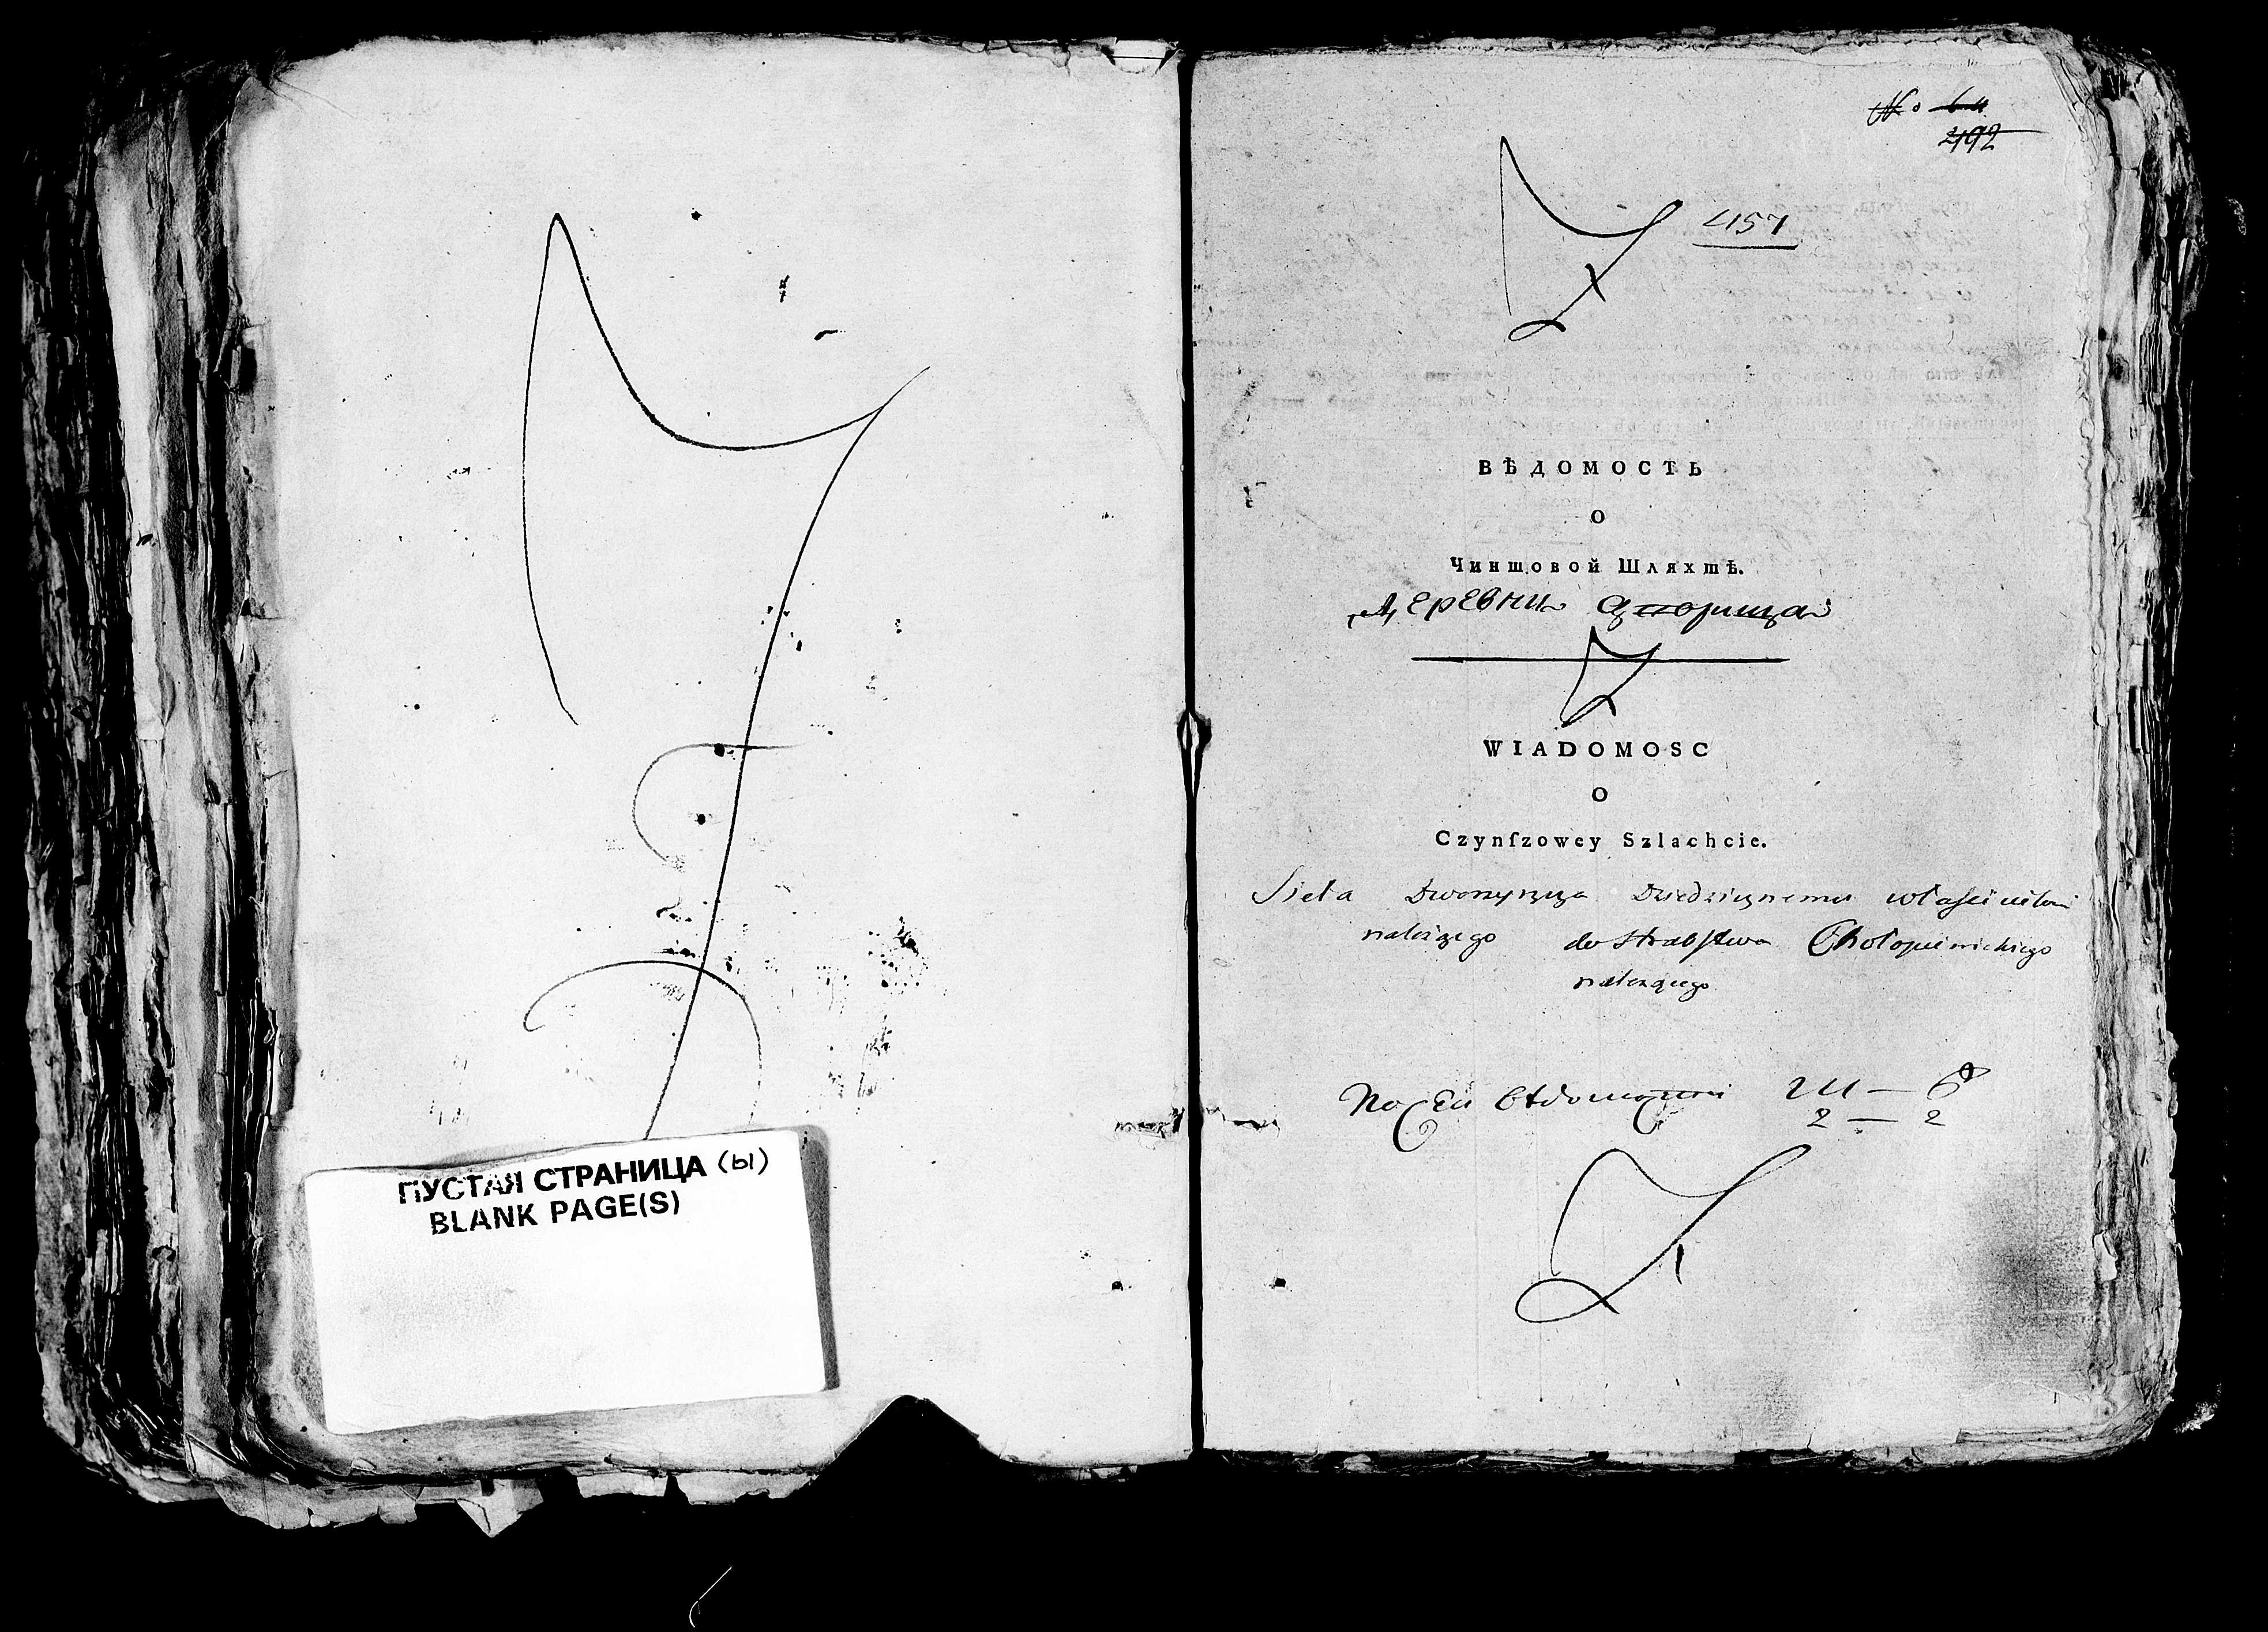 ПУСТАЯ СТРАНИЦА (ы)
BLANK PAGE(S)
№
492
457
ВѢДОМОСТЬ
О
Чиншовой Шляхтѣ.
Деревни
WIADOMOSC
O
Czynſzowey Szlachcie.
Sieła Dworzyszcza Dziedzicznemu
do Hrabstwa Chołopienickiego
należącego
По сей вѣдомости 2 м — 6
2 — 2